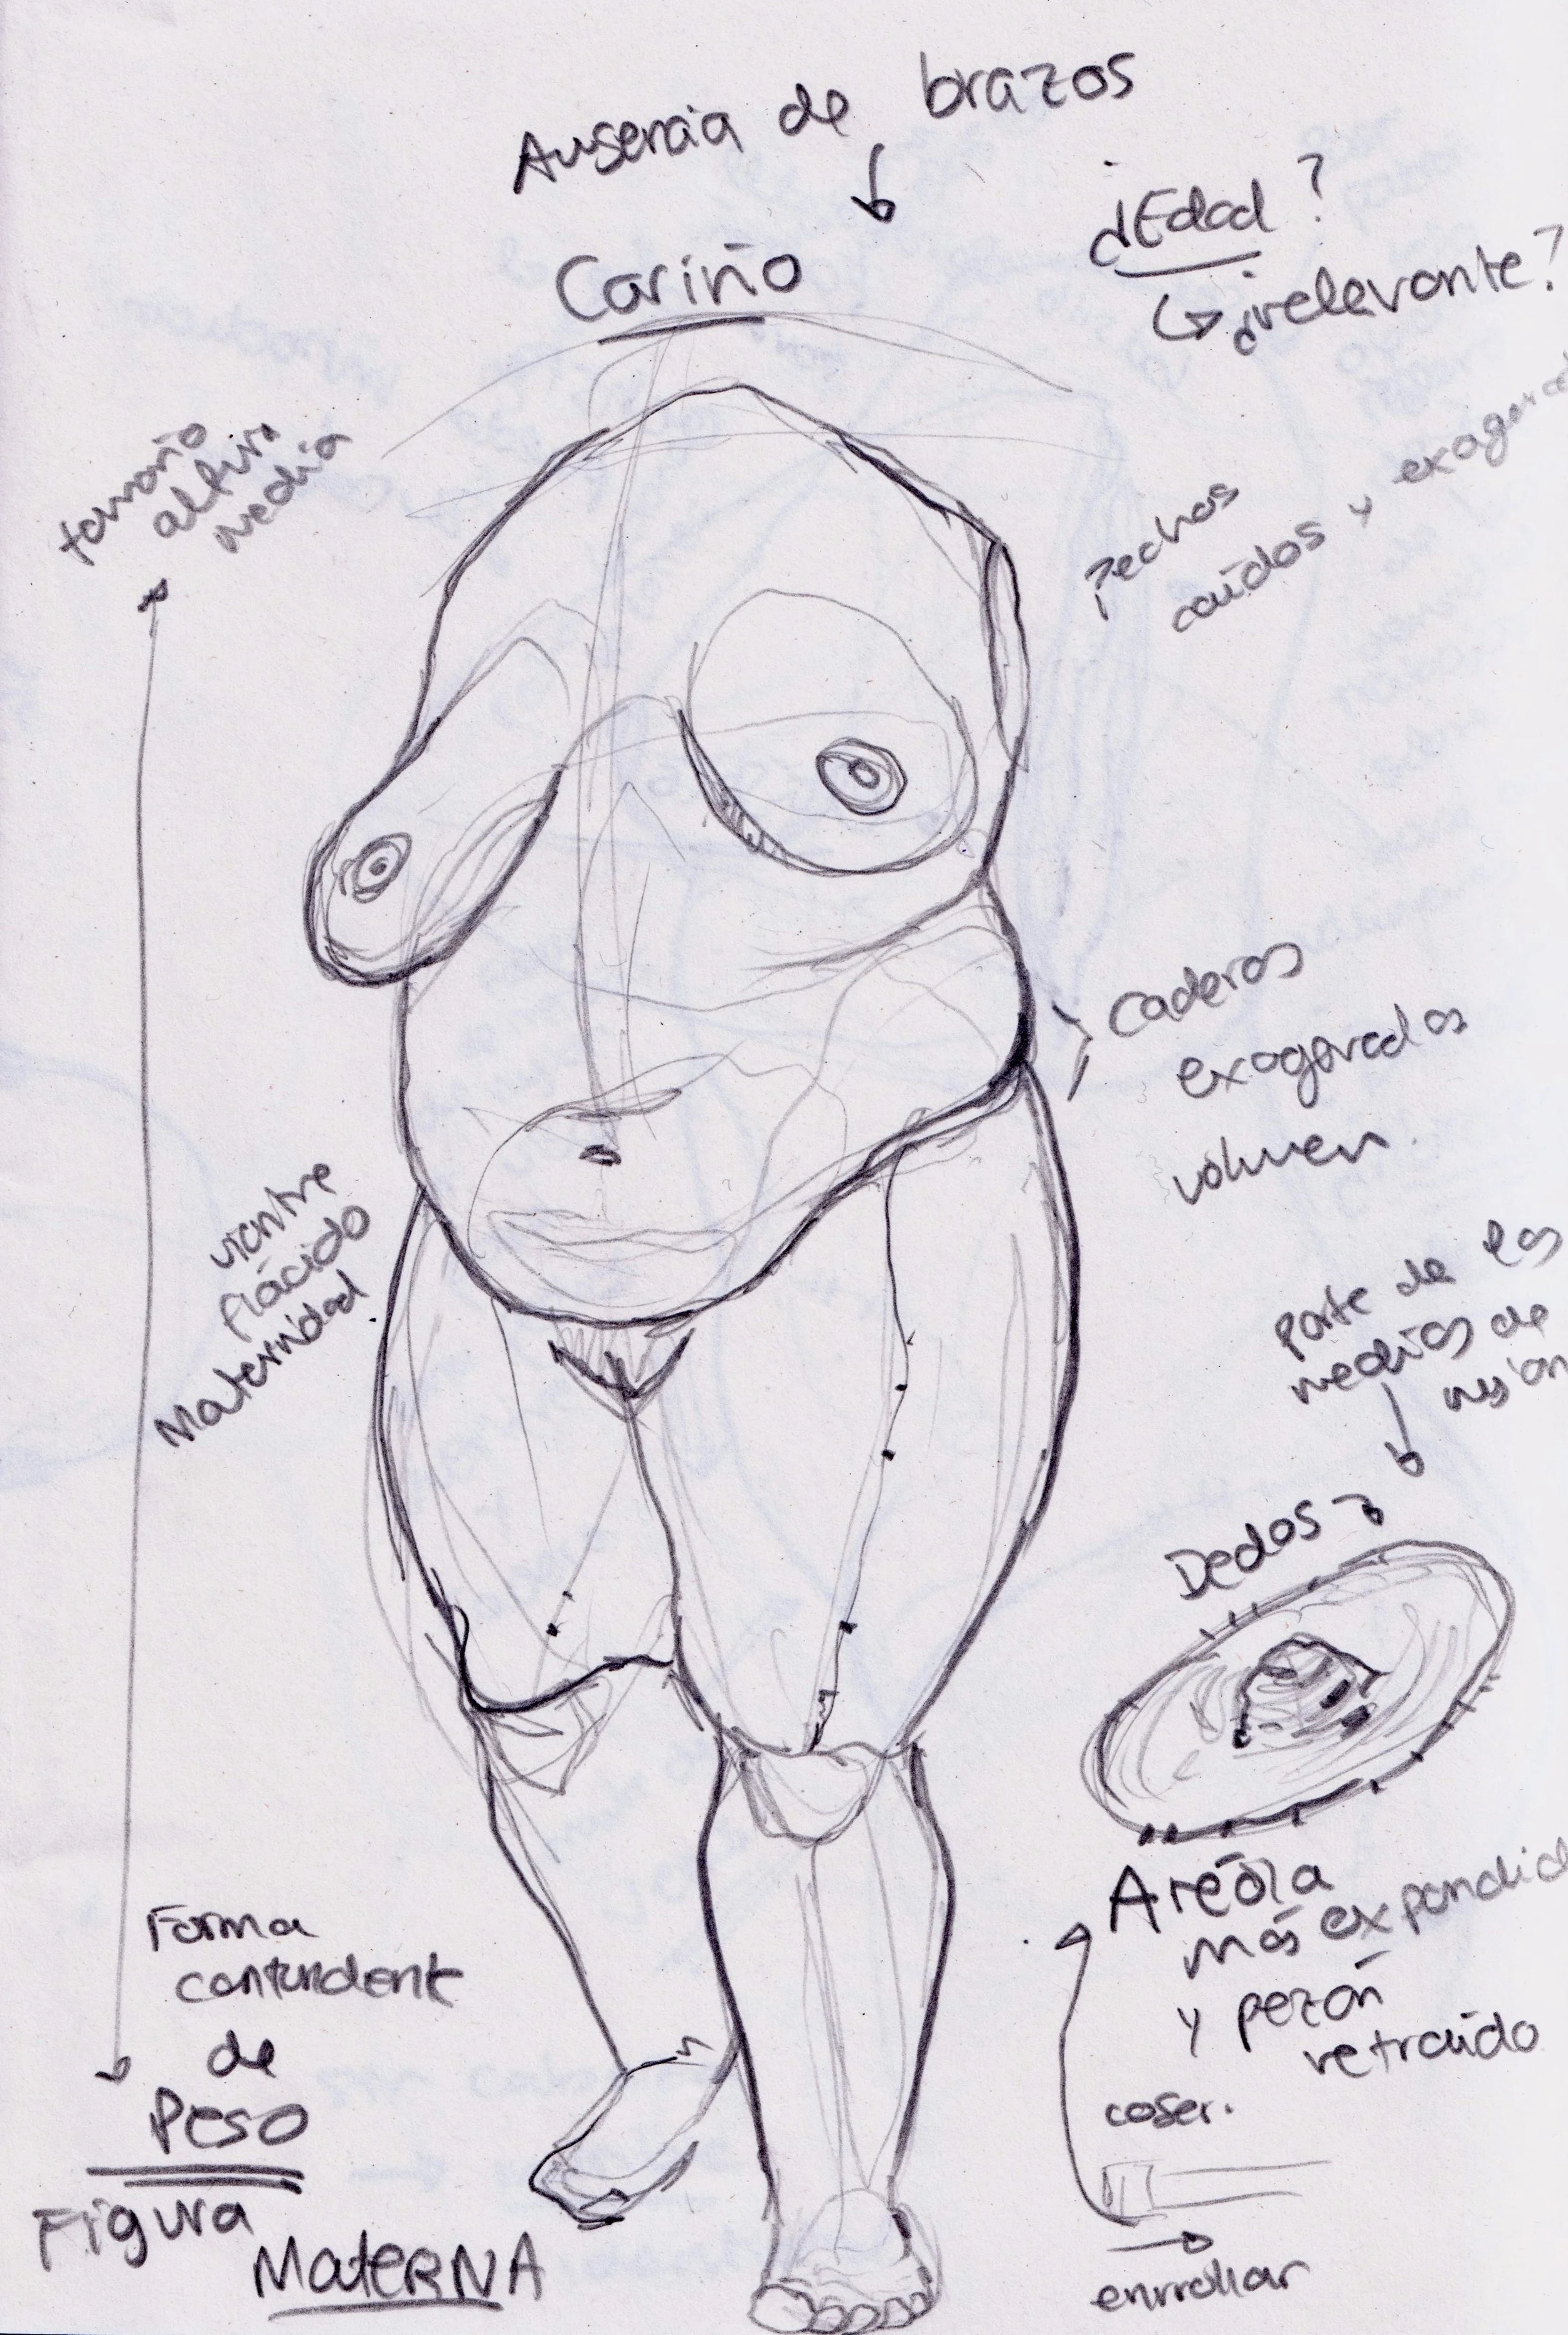 Ausencia de brazos
Cariño
¿Edad?
¿irrelevante?
tamaño
altura
media
pechos
caídos y exagerad
Caderas
exageradas
volumen.
vientre
flácido
Maternidad
Parte de las
medias de
Dedos
Aréola
más expandid
y pezón
retraído
coser.
enrrollar
Forma
contundente
de
Peso
Figura
MateRNA